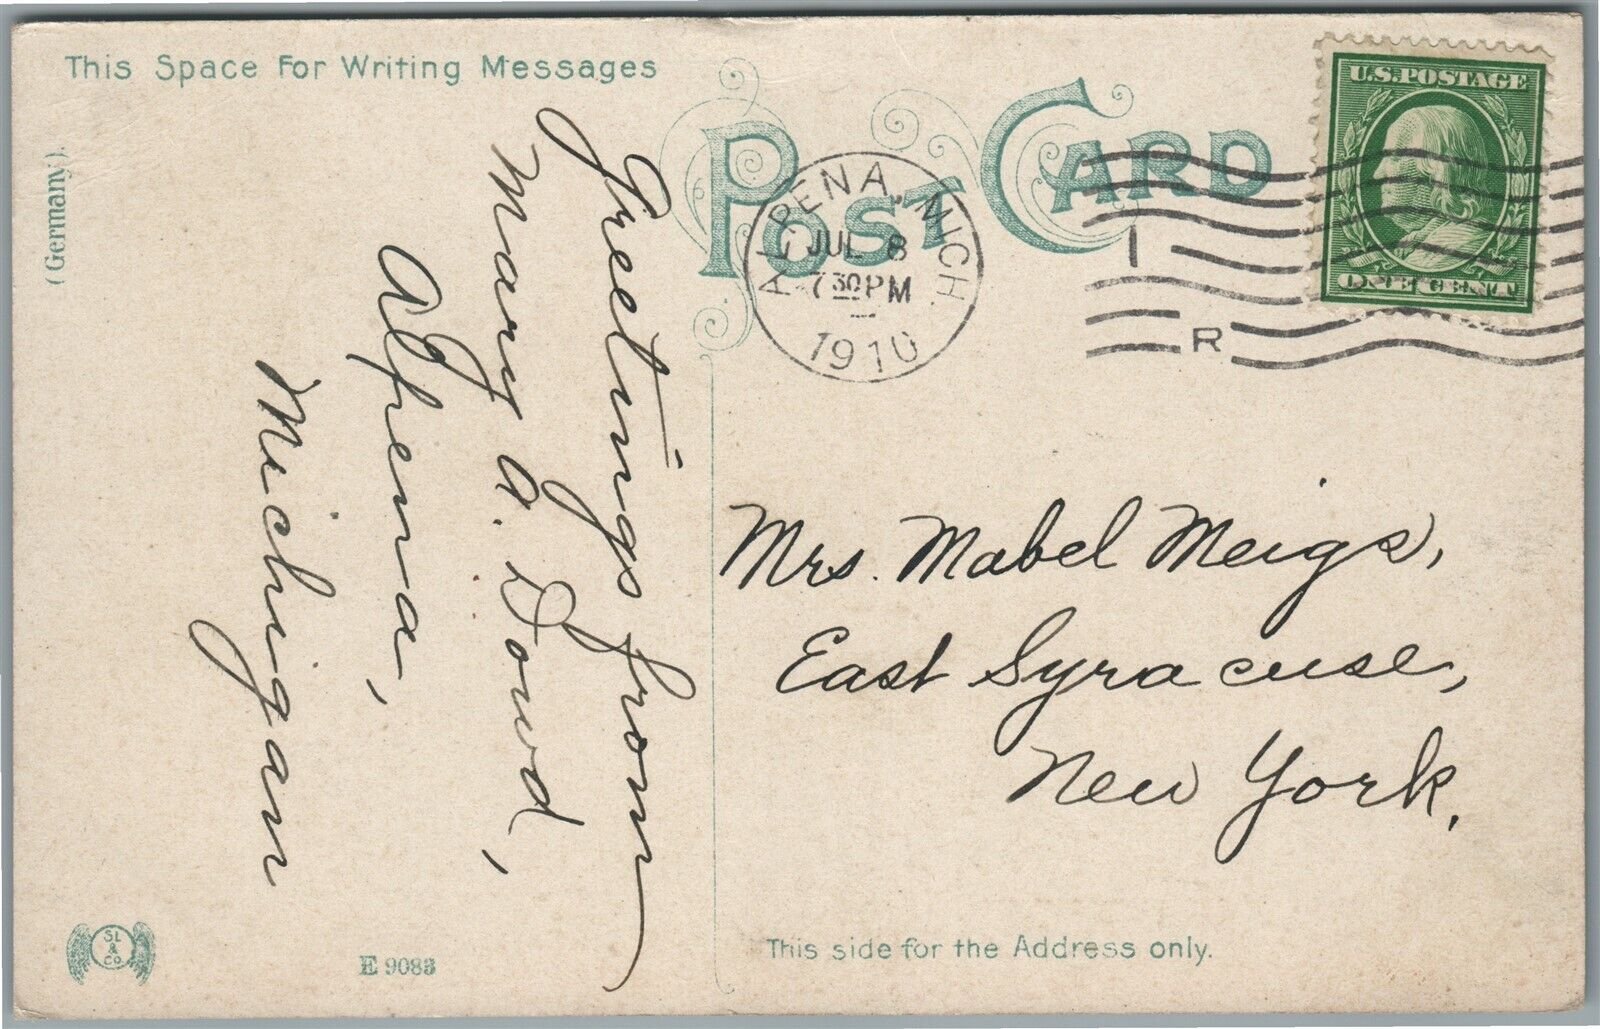 This Space For Writing Messages
(Germany).
POST CARD
U.S. POSTAGE
ONE CENT
ALPENA, MICH.
JUL 8
7 30 PM
1910
1
R
Greetings from
Mary A. Dowd,
Alpena,
Michigan
Mrs. Mabel Meigs,
East Syracuse,
New York.
This side for the Address only.
SL
&
CO
E 9083